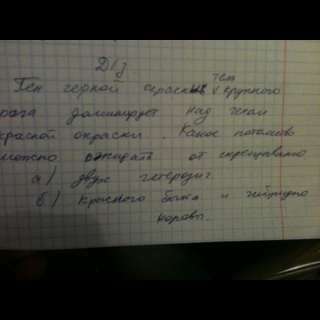 D/з
Ген черной окраски тела крупного
рога доминирует над геном
красной окраски. Какое потомство
можно ожидать от скрещивания
а) двух гетерозиг.
б) красного быка и гибридно
коровы.